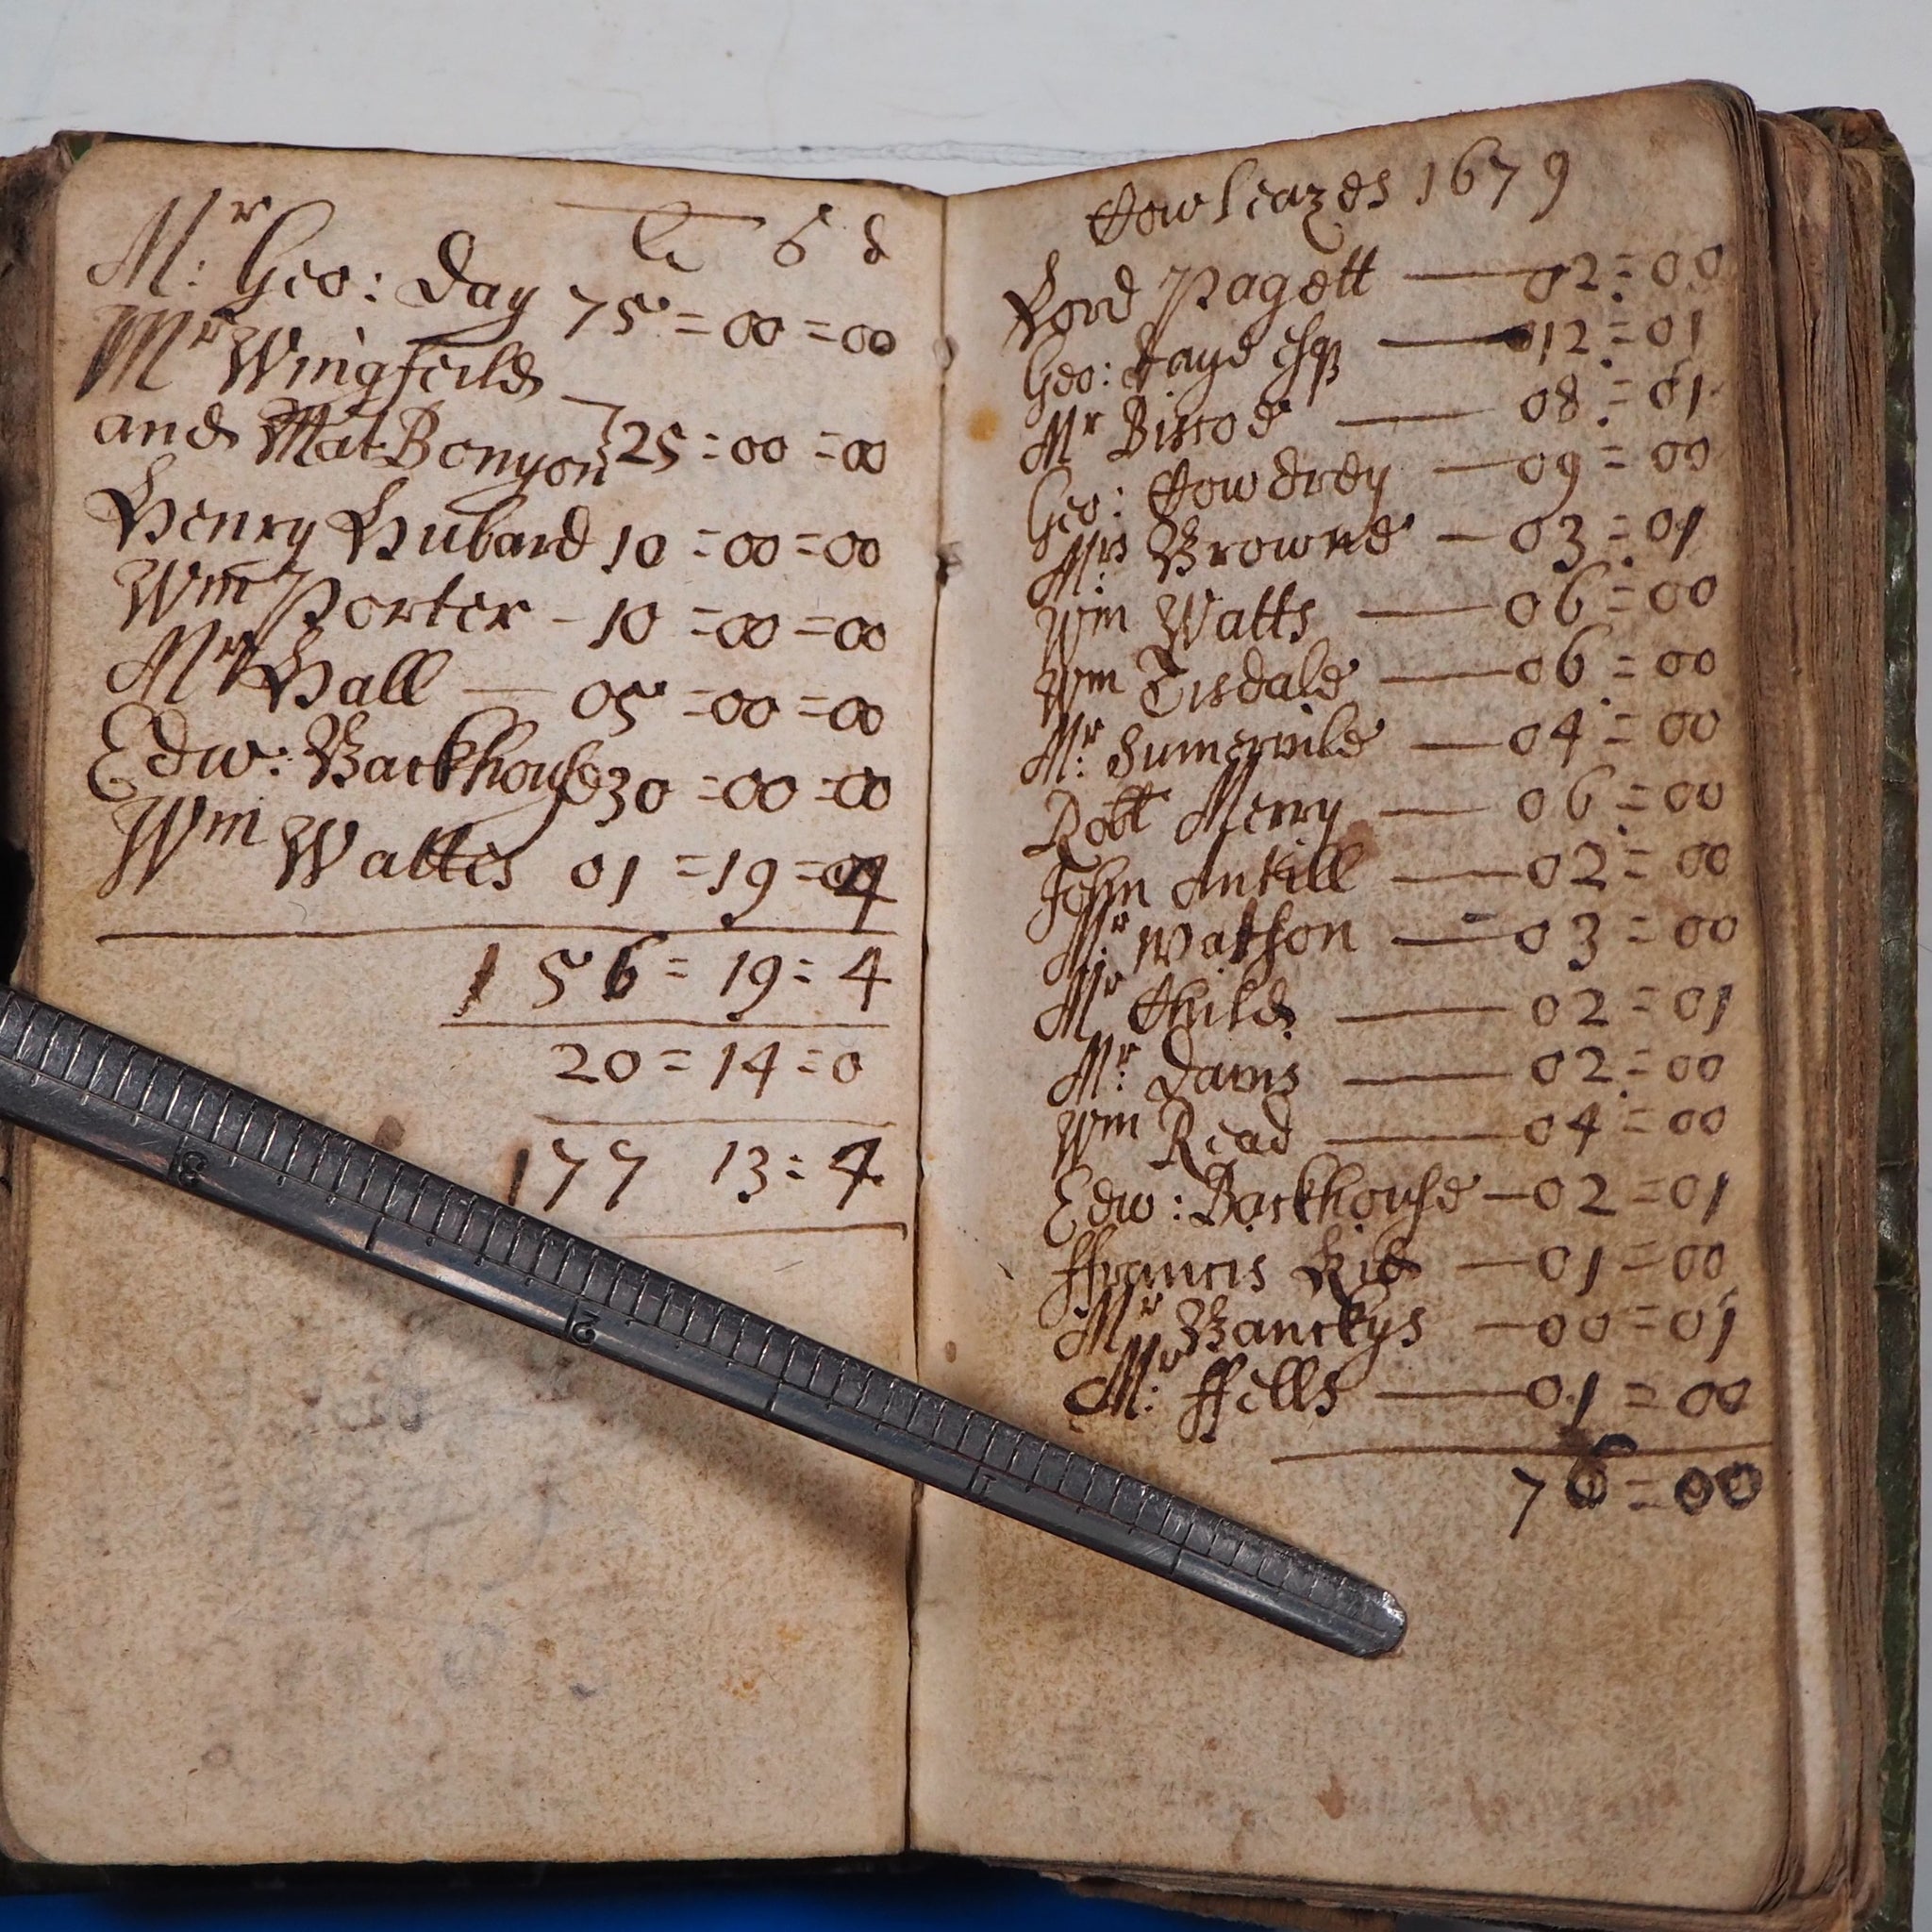 li s d
Mr: Geo: Day 75=00=00
Mr Wingfeild
and Mat Bonyon 25=00=00
Henry Hubard 10=00=00
Wm Porter - 10=00=00
Mr Hall — 05=00=00
Edw: Backhouse 30=00=00
Wm Wattes 01=19=04
156=19=4
20=14=0
177 13=4
Cow leazes 1679
Lord Pagett — 02=00
Geo: Daye Esqr — 012=01
Mr Biscoe — 08=01
Geo: Cowdrey — 09=00
Mrs Browne — 03=01
Wm Watts — 06=00
Wm Tisdale — 06=00
Mr: Sumervile — 04=00
Robt Merry — 06=00
John Antill — 02=00
Mr: Watson — 03=00
Mr Child — 02=01
Mr: Davis — 02=00
Wm Read — 04=00
Edw: Backhouse — 02=01
ffrancis — 01=00
Mr Banckys — 00=01
Mr: ffells — 01=00
76=00
3
2
1